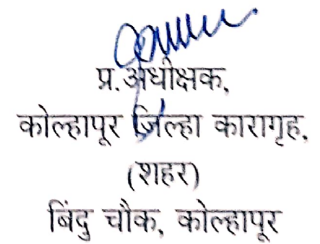 प्र.अधीक्षक,
कोल्हापूर जिल्हा कारागृह,
(शहर)
बिंदु चौक, कोल्हापूर